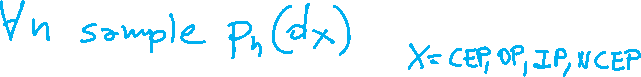 ∀n sample pₙ(dx) X=CEP, OP, IP, NCEP